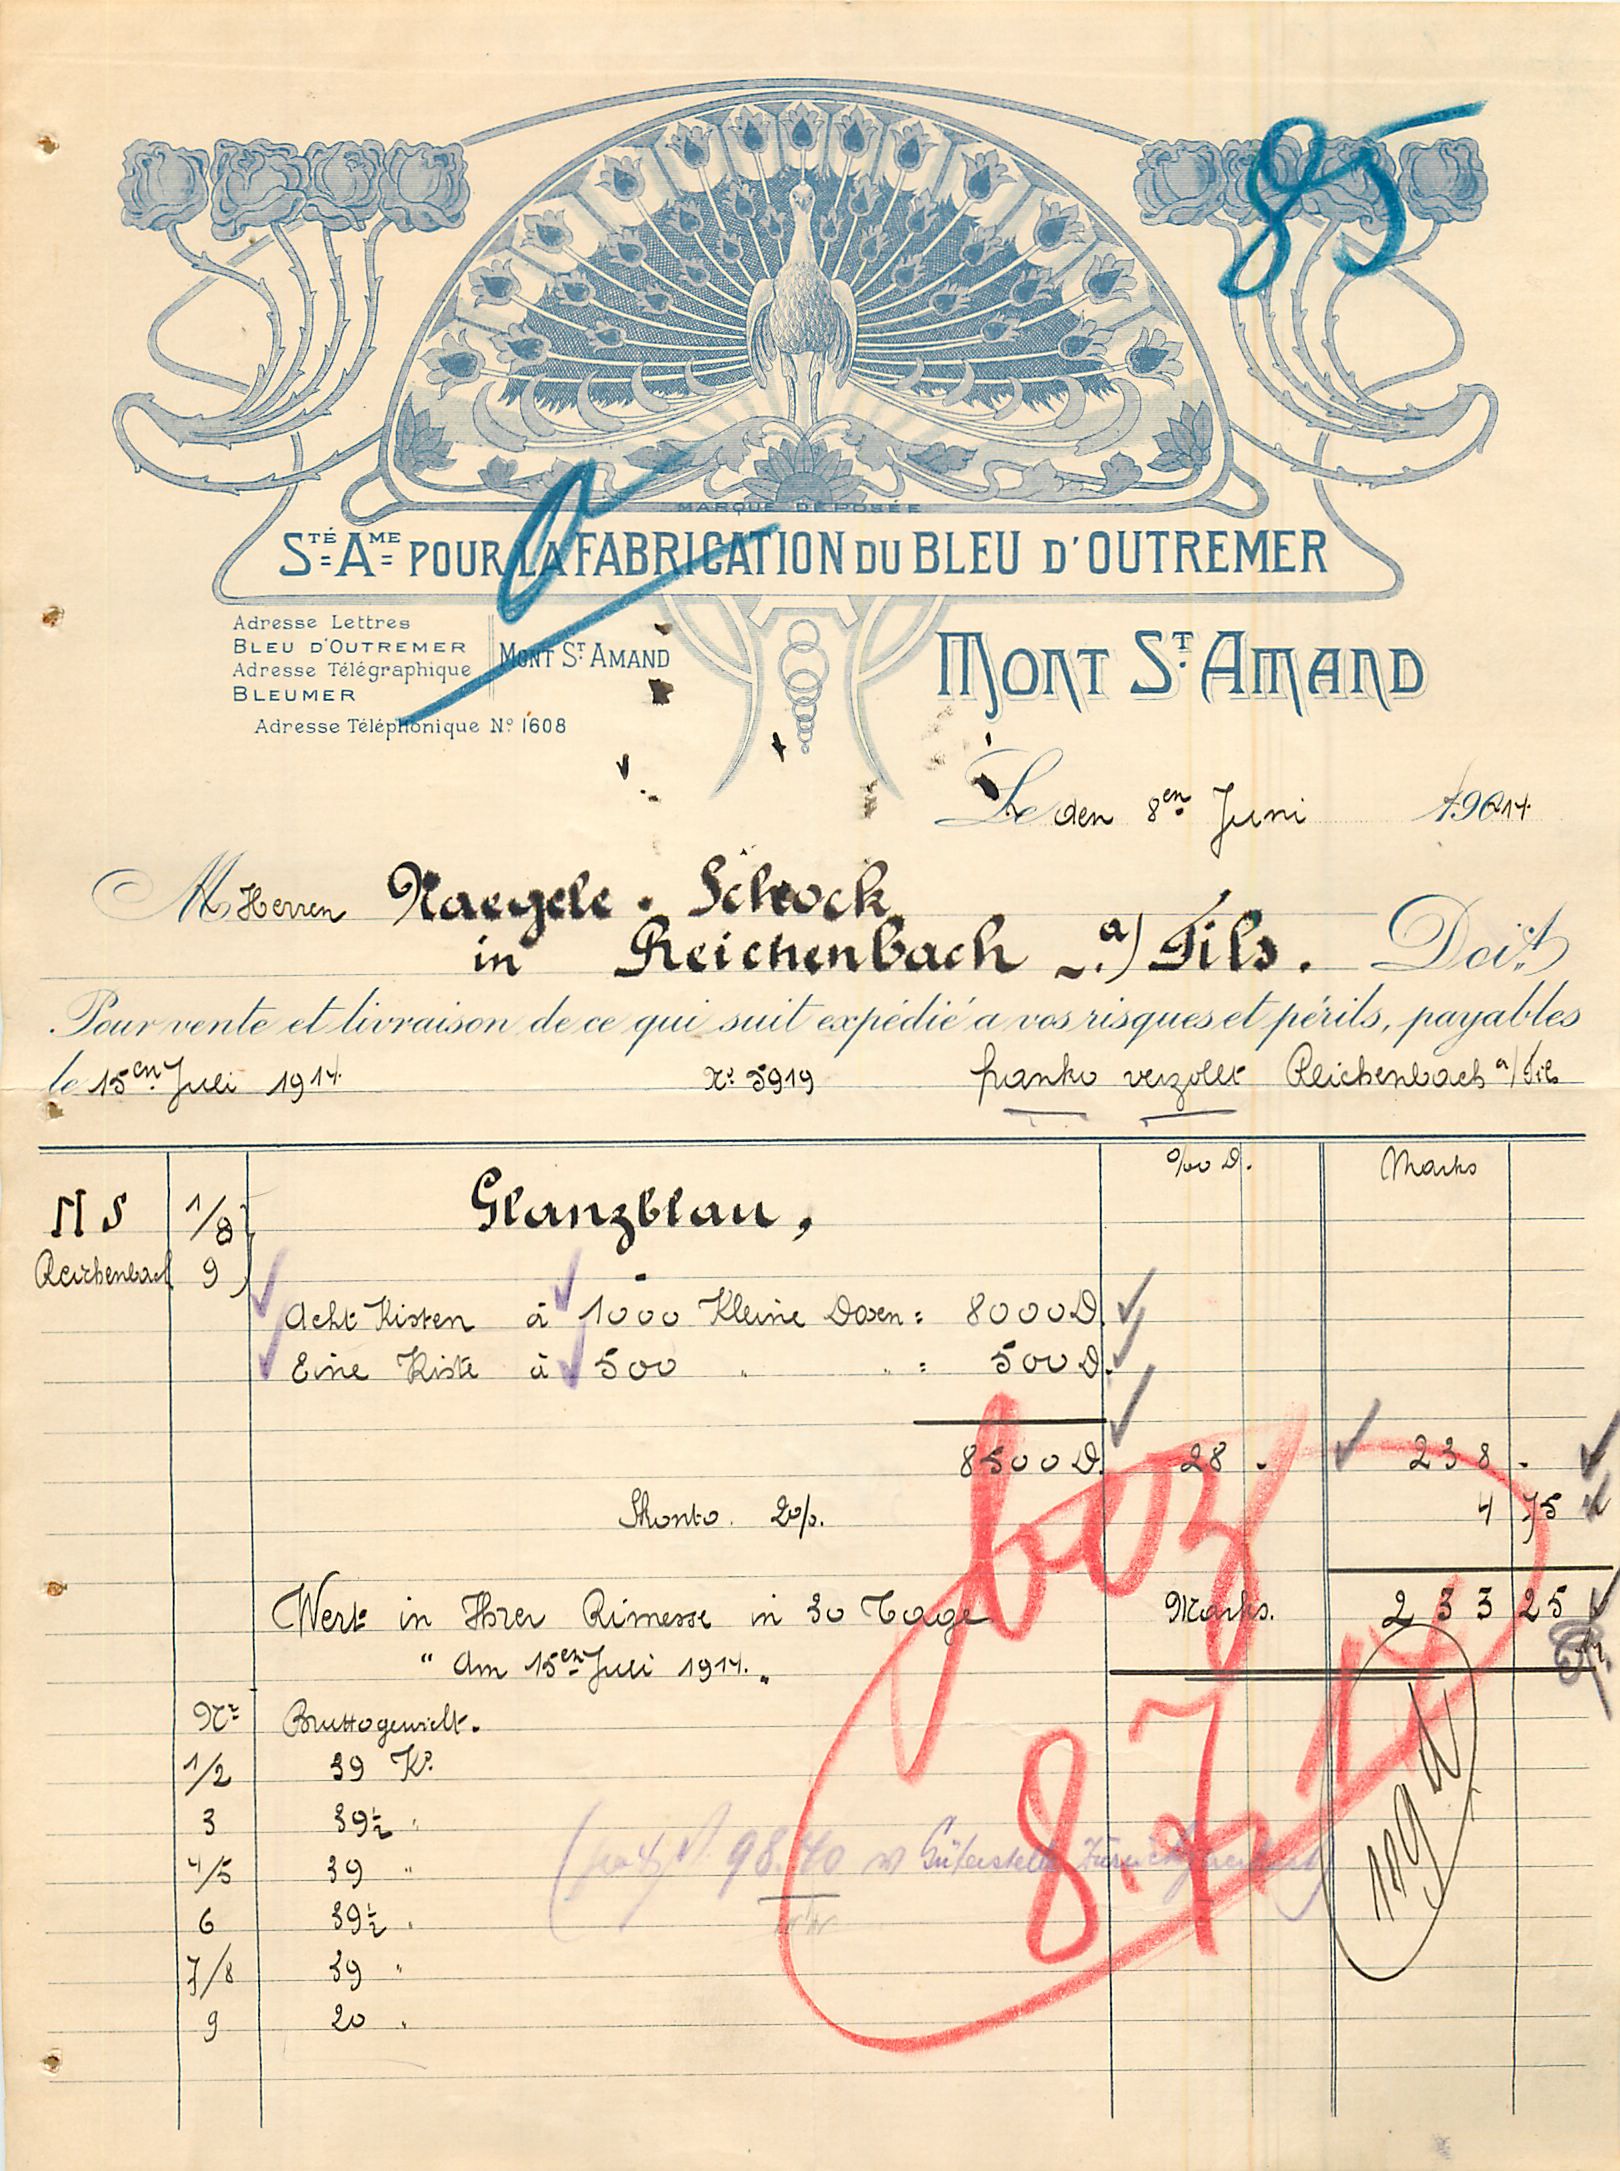 85
MARQUE DÉPOSÉE
STÉ AME POUR LA FABRICATION DU BLEU D'OUTREMER
Adresse Lettres
BLEU D'OUTREMER
Adresse Télégraphique
BLEUMER
MONT ST. AMAND
Adresse Téléphonique No. 1608
MONT ST. AMAND
Le den 8en Juni 1914
M Herren Naegele. Schock
in Reichenbach a/ Fils. Doit
Pour vente et livraison de ce qui suit expédié à vos risques et périls, payables
le 15en Juli 1914. No. 5919 franko verzollt Reichenbach a/ Fils
0/00 D. Marks
N S 1/8 Glanzblau,
Reichenbach 9
Acht Kisten à 1000 Kleine Dosen = 8000 D.
Eine Kiste à 500 " " = 500 D.
8500 D. 28 - 238 -
Skonto. 2%. 4 75
Wert in Ihrer Rimesse in 30 Tage Marks. 233 25
" am 15en Juli 1914. "
No. Bruttogewicht.
1/2 39 Ko.
3 39½ "
4/5 39 "
98.40
6 39½ "
7/8 39 "
9 20 "
bez
8.7.14